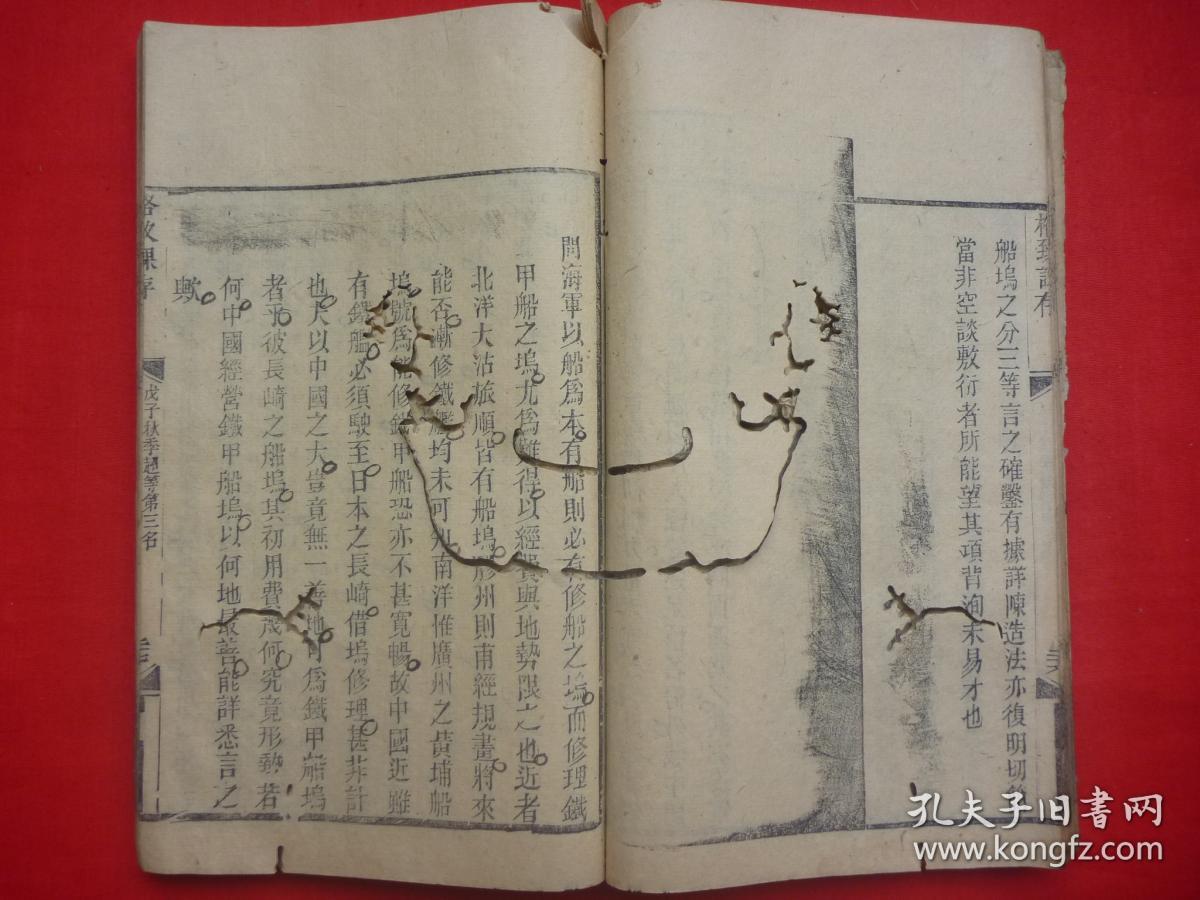 格致課存
船塢之分三等言之確鑿有據詳陳造法亦復明切
當非空談敷衍者所能望其項背洵未易才也
問海軍以船爲本有船則必有修船之塢而修理鐵
甲船之塢尤爲難得以經費與地勢限之也近者
北洋大沽旅順皆有船塢膠州則南經規畫將來
能否漸修鐵艦均未可知南洋惟廣州之黃埔船
塢號爲能修鐵甲船恐亦不甚寬暢故中國近雖
有鐵艦必須駛至日本之長崎借塢修理甚非計
也夫以中國之大豈竟無一善地可爲鐵甲船塢
者乎彼長崎之船塢其初用費幾何究竟形勢若
何中國經營鐵甲船塢以何地最善能詳悉言之
歟
格致課存
戊子秋季超等第三名
孔夫子旧書网
www.kongfz.com